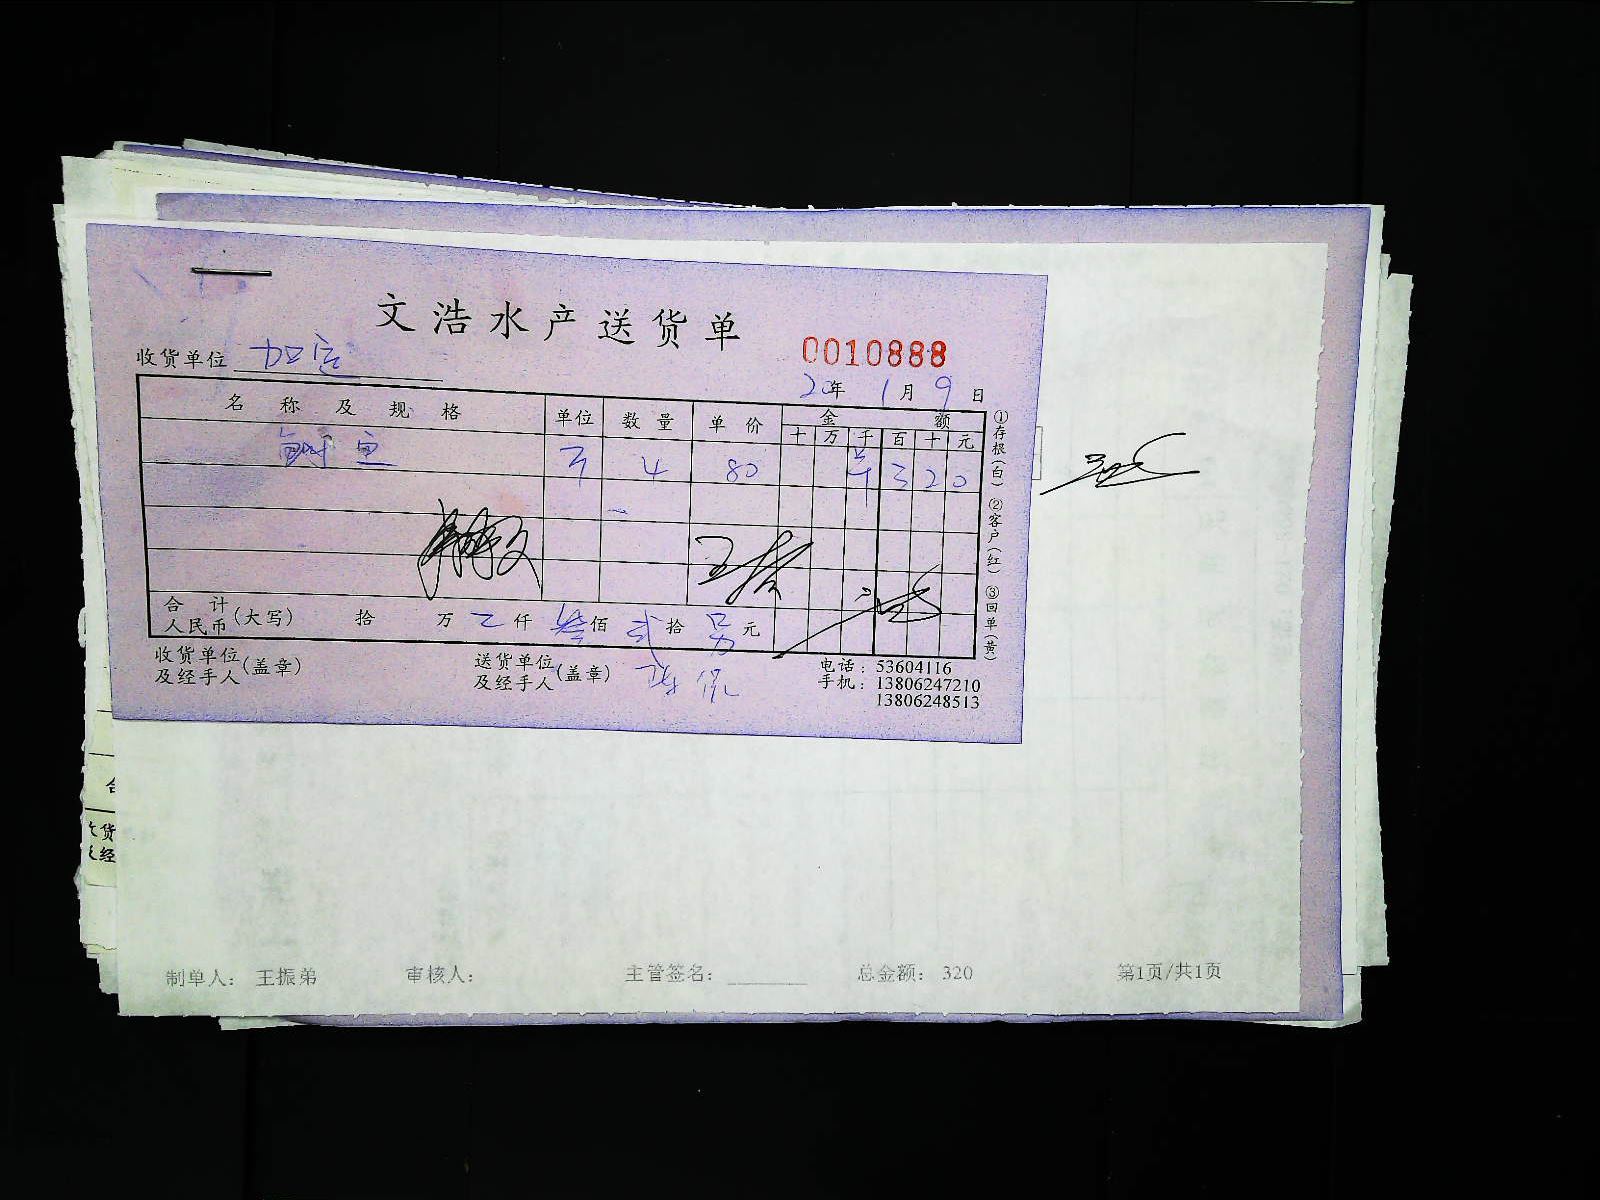 文浩水产送货单
收货单位 加
0010888
20年 1月 9日
名称及规格 单位 数量 单价 金额
十 万 千 百 十 元
鲥鱼 4 80 3 2 0
①存根(白) ②客户(红) ③回单(黄)
合计
人民币(大写) 拾 万 仟 叁佰 贰拾 元
收货单位
及经手人(盖章)
送货单位
及经手人(盖章)
电话:53604116
手机:13806247210
13806248513
合
货
经
制单人: 王振弟 审核人: 主管签名: 总金额: 320 第1页/共1页